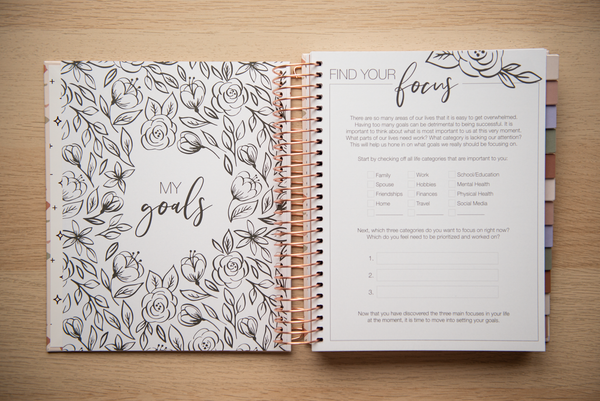 MY
goals
FIND YOUR
focus
There are so many areas of our lives that it is easy to get overwhelmed.
Having too many goals can be detrimental to being successful. It is
important to think about what is most important to us at this very moment.
What parts of our lives need work? What category is lacking our attention?
This will help us hone in on what goals we really should be focusing on.
Start by checking off all life categories that are important to you:
Family Work School/Education
Spouse Hobbies Mental Health
Friendships Finances Physical Health
Home Travel Social Media
Next, which three categories do you want to focus on right now?
Which do you feel need to be prioritized and worked on?
1.
2.
3.
Now that you have discovered the three main focuses in your life
at the moment, it is time to move into setting your goals.